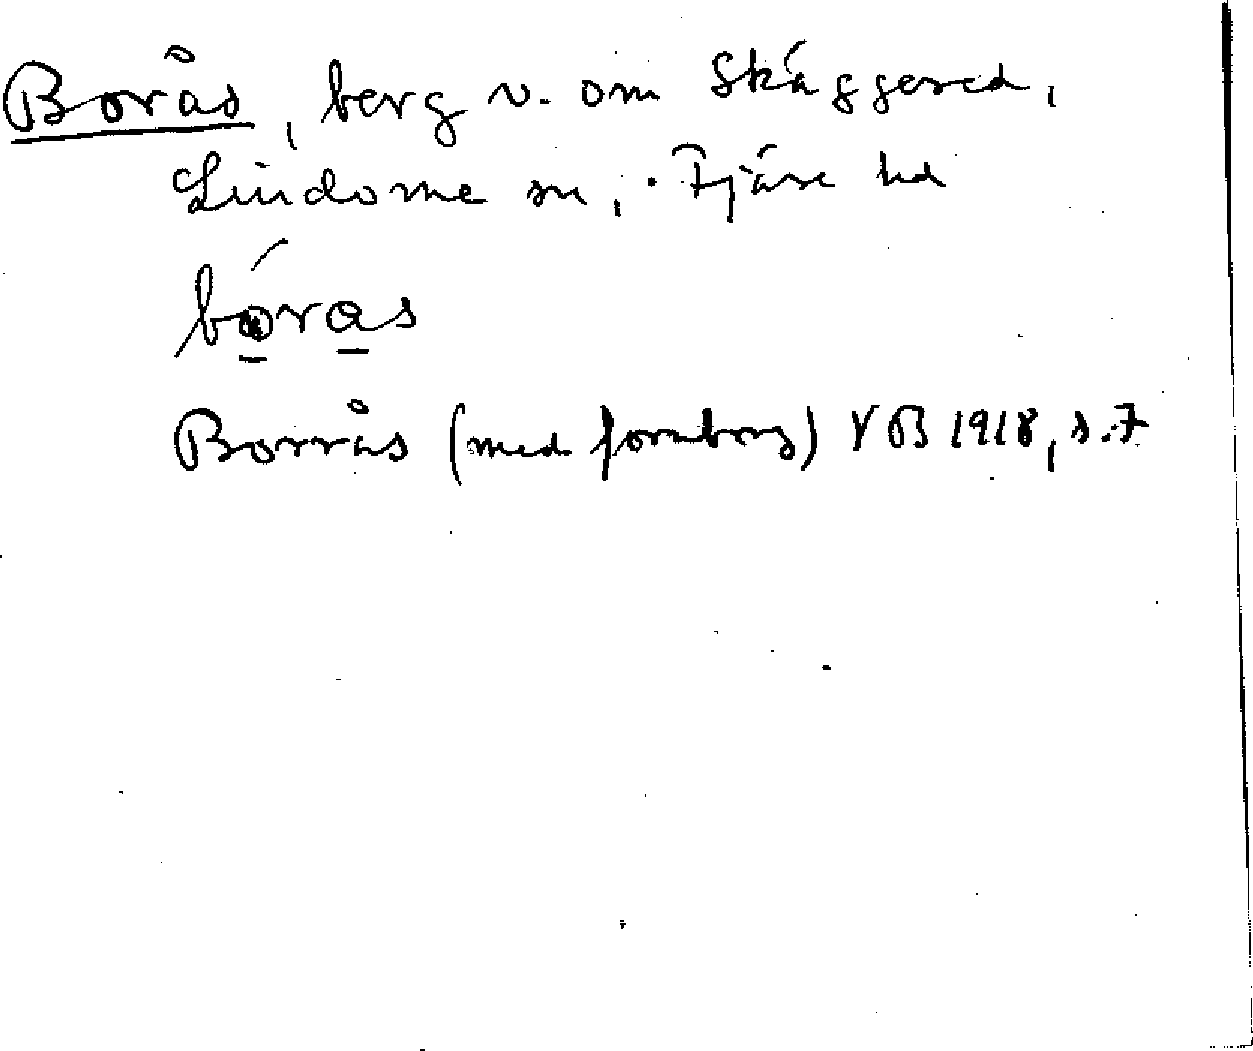 Borås, berg v. om Skäggered,
Lindome sn, Fjäre hd
bóras
Borrås (med fornborg) VB 1918, s. 7